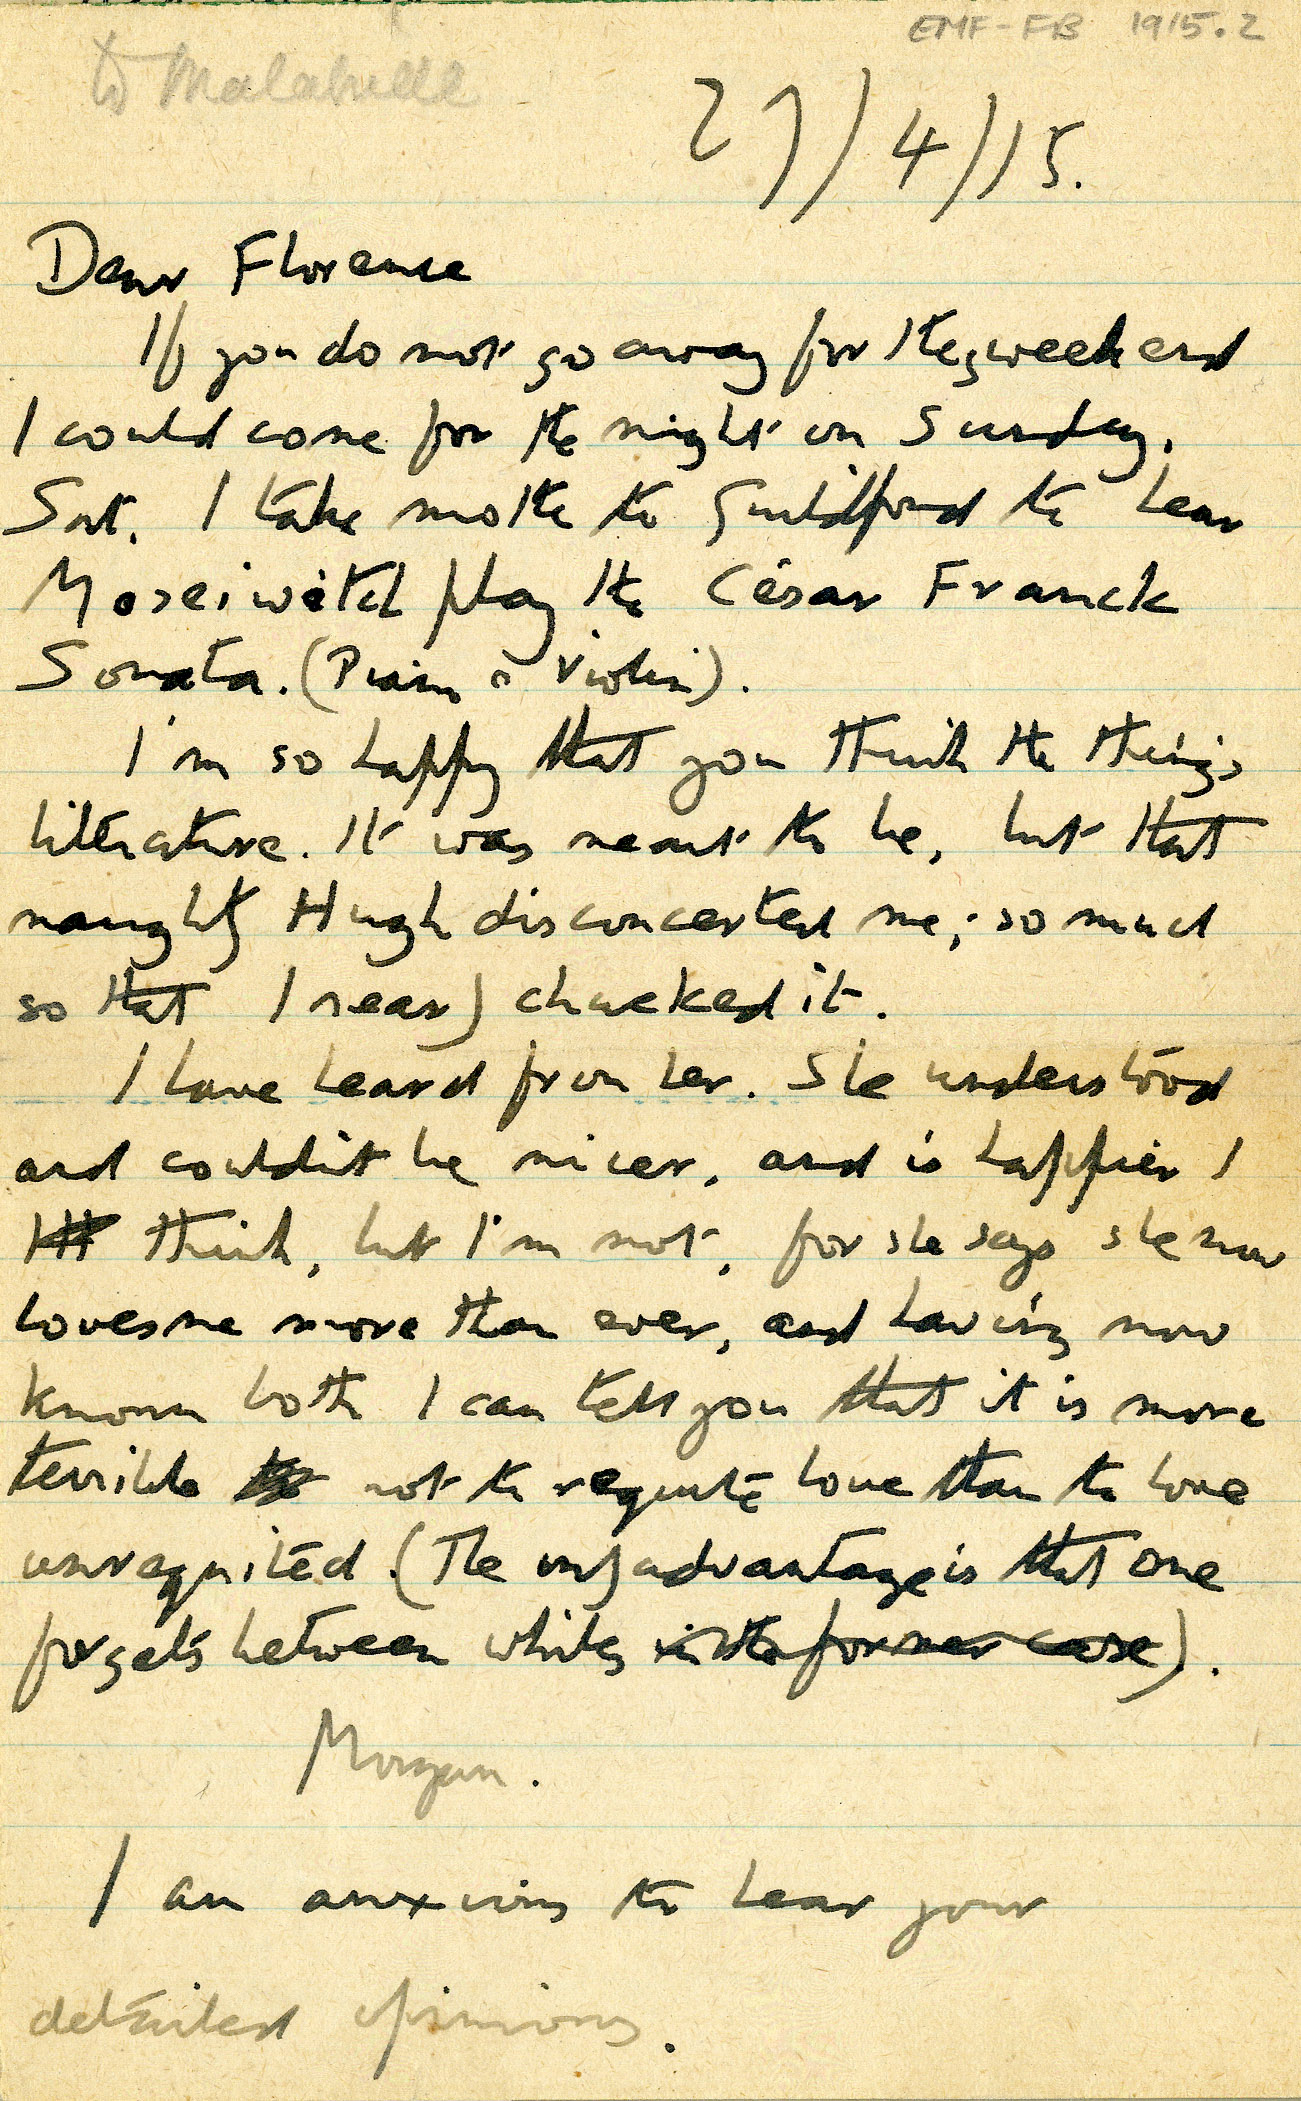 EMF-FB 1915.2
to
27/4/15.
Dear Florence
If you do not go away for the weekend
I could come for the night on Sunday.
Sat. I take mother to Guildford to hear
Moseiwitch play the César Franck
Sonata. (Piano & Violin).
I'm so happy that you think the thing's
litterature. It was meant to be, but that
naughty Hugh disconcerted me; so much
so that I nearly chucked it.
I have heard from her. She understood
and couldn't be nicer, and is happier I
think, but I'm not, for she says she now
loves me more than ever, and having now
known both I can tell you that it is more
terrible not to requite love than to love
unrequited. (The only advantage is that one
forgets between whiles in the former case).
Morgan.
I am anxious to hear your
detailed opinions.